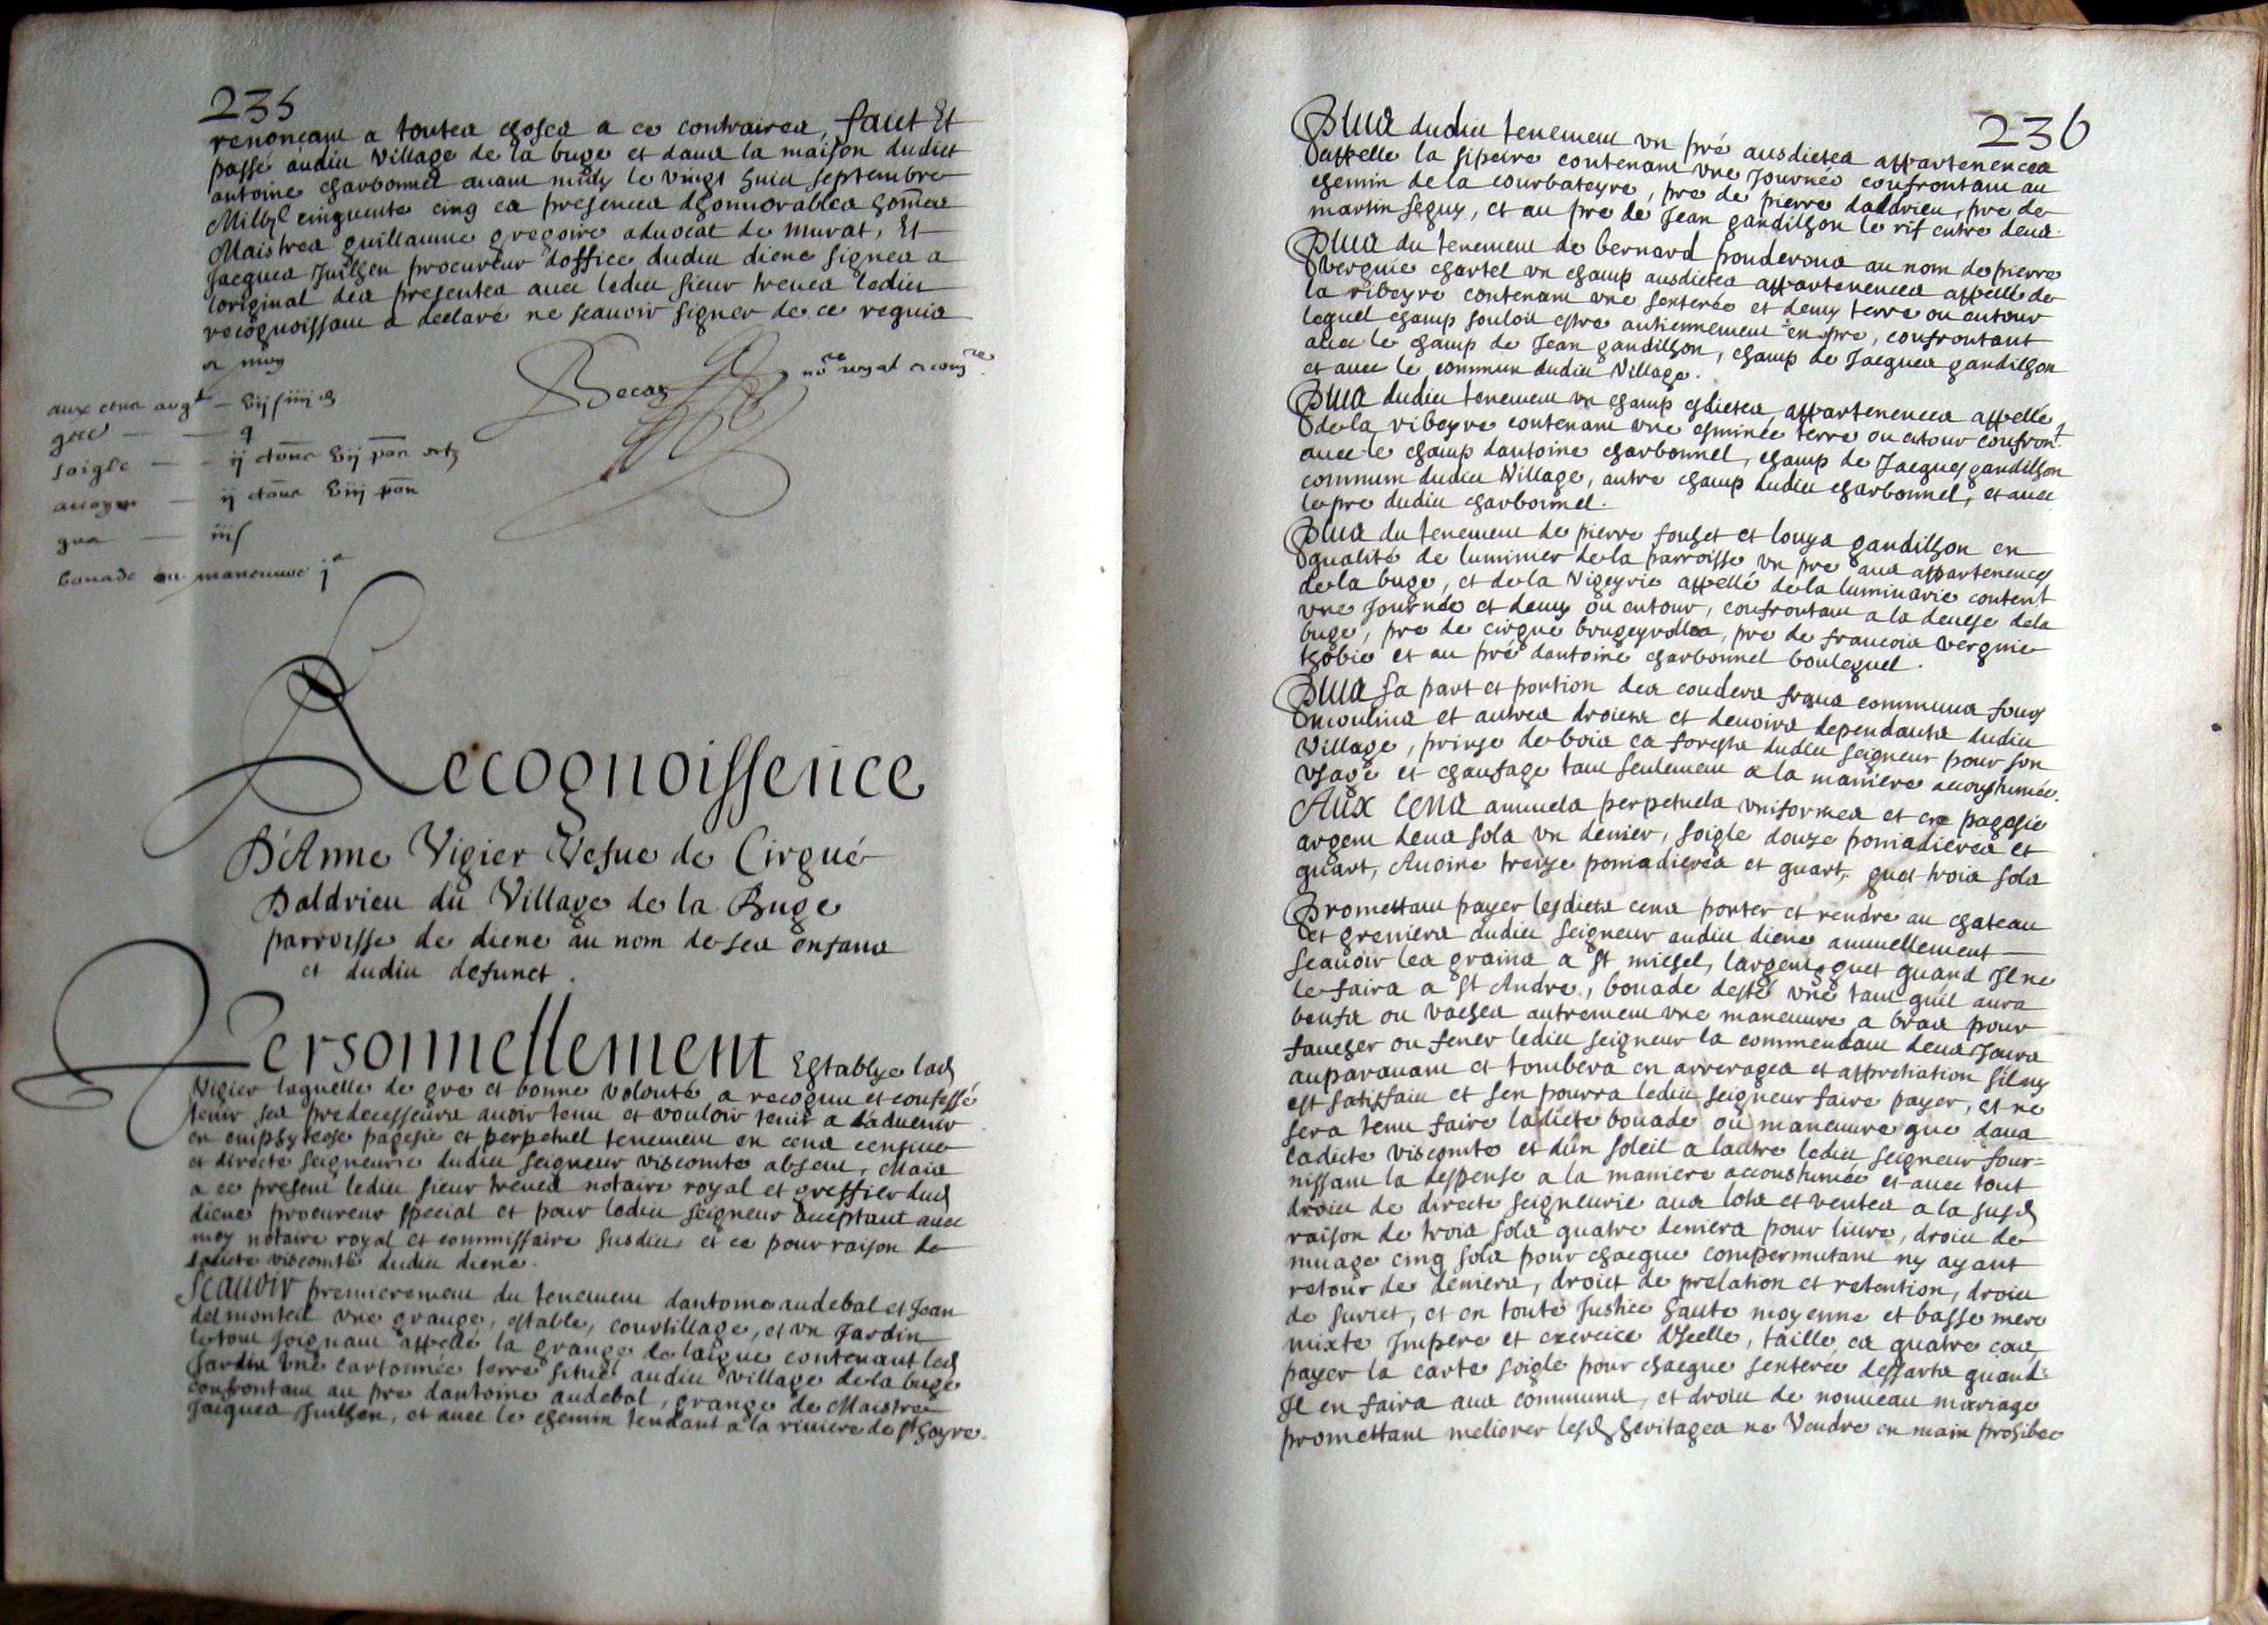 235
renonçant a toutes choses a ce contraires, faict Et
passé audict Village de la buge et dans la maison dudict
antoine charbonnel auant midy le vingt huict septembre
Mil VIc cinquente cinq es presences dhonnorables homes
Maistres guillaume gregoire aduocat de murat, Et
Jacques Juilhen procureur doffice dudict diene signes a
loriginal des presentes auec ledict sieur treues ledict
recognoissant a declaré ne scauoir signer de ce requis
et moy
Becas nore royal et comre
aux cens argt — vij s iiij d
geli — q
soigle — ij
auoyne — ij
gua — iii s
bouade ou manenuvre j a
Recognoissence
D'Anne Vigier Vefue de Cirgué
Daldrieu du Village de la Buge
parroisse de diene au nom de ses enfans
et dudict defunct.
Personnellement Establye lad
Vigier laquelle de gre et bonne volonté a recognu et confessé
tenir ses predecesseurs auoir tenu et vouloir tenir a laduenir
en emphyteose pagesie et perpetuel tenement en cens censiue
et directe seigneurie dudict seigneur viscomte absent, Mais
a ce present ledict sieur treues notaire royal et greffier dud
diene procureur special et pour ledict seigneur acceptant auec
moy notaire royal et commissaire susdict et ce pour raison de
ladicte viscomté dudict diene.
Scauoir premierement du tenement dantoine audebal et Jean
delmonteil vne grange, estable, courtillage, et vn Jardin
le tout Joignant appellé la grange de laigue contenant led
Jardin vne cartonnée terre situé audict village de la buge
confrontant au pre dantoine audebal, grange de Maistre
Jacques Juilhen, et auec le chemin tendant a la riuiere de st hoyre.
236
Plus dudict tenement vn pré ausdictes appartenences
appelle la sipeire contenant vne Journée confrontant au
chemin de la courbateyre, pre de pierre daldrieu, pre de
martin seguy, et au pre de Jean gandilhon le rif entre deux.
Plus du tenement de bernard ponderous au nom de pierre
vergnie chartel vn champ ausdictes appartenences appellé de
la ribeyre contenant vne sesterée et demy terre ou entour
lequel champ souloit estre antiennement en pre, confrontant
auec le champ de Jean gandilhon, champ de Jacques gandilhon
et auec le commun dudict Village.
Plus dudict tenement vn champ esdictes appartenences appellé
de la ribeyre contenant vne eminée terre ou entour confront
auec le champ dantoine charbonnel, champ de Jacques gandilhon
commum dudict Village, autre champ dudict charbonnel, et auec
le pre dudict charbonnel.
Plus du tenement de pierre fouhet et louys gandilhon en
qualité de luminier de la parroisse vn pre aux appartenences
de la buge, et de la Vigeyrie appellé de la luminarie content
vne Journée et demy ou entour, confrontant a la deuese dela
buge, pre de cirgue brugeyrolles, pre de francois vergnie
thobie et au pré dantoine charbonnel bouleguel.
Plus sa part et portion des couders fraux communs fours
moulins et autres droicts et deuoirs dependants dudict
Village, prinse de bois es forests dudict seigneur pour son
vsage et chaufage tant seulement a la maniere accoustumée.
Aux Cens annuels perpetuels vniformes et en pagesie
argent deux sols vn denier, soigle douze poniadieres et
quart, Auoine treize poniadieres et quart, guet trois sols
Promettant payer lesdicts cens porter et rendre au chateau
et greniers dudict seigneur audict diene annuellement
Scauoir les grains a st michel, largent, guet quand Il ne
le faira a st Andre, bouade desté vne tant quil aura
boeufs ou vaches autrement vne maneuure a bras pour
faucher ou fener ledict seigneur la commendant deux Jours
auparauant et tombera en arrerages et appretiation sil ny
est satisfaict et sen pourra ledict seigneur faire payer, et ne
sera tenu faire ladicte bouade ou maneuure que dans
ladicte viscomte et dun soleil a lautre ledict seigneur four=
nissant la despense a la maniere accoustumée et auec tout
droict de directe seigneurie aux lots et ventes a la susd
raison de trois sols quatre deniers pour liure, droict de
muage cinq sols pour chacque compermutant ny ayant
retour de deniers, droict de prelation et retention, droict
de suriet, et en toute Justice haute moyenne et basse mere
mixte Impere et exercice dIcelle, taille es quatre cas,
payer la carte soigle pour chacque sesterée dessarts quand
Il en faira aux communs, et droict de nouueau mariage
promettant meliorer lesd heritages ne Vendre en main prohibee